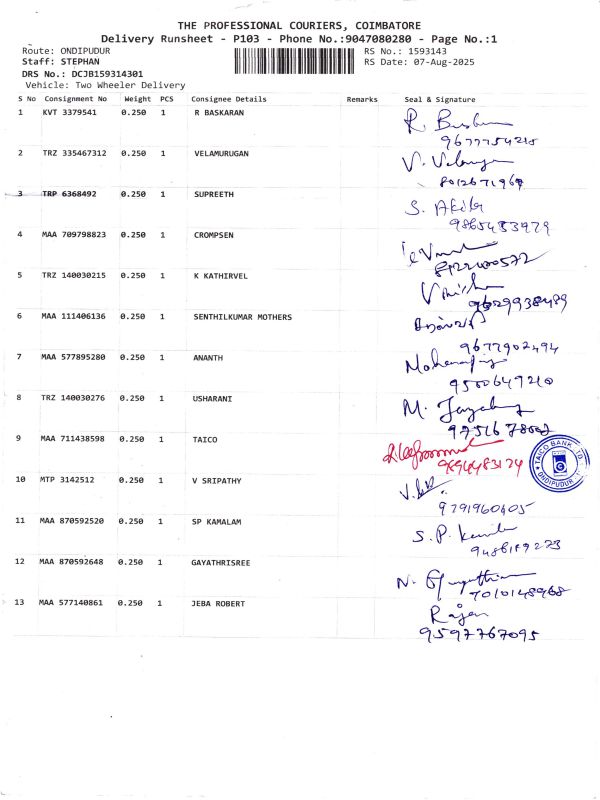 THE PROFESSIONAL COURIERS, COIMBATORE
Delivery Runsheet - P103 - Phone No.:9047080280 - Page No.:1
Route: ONDIPUDUR
RS No.: 1593143
Staff: STEPHAN
RS Date: 07-Aug-2025
DRS No.: DCJB159314301
Vehicle: Two Wheeler Delivery
S No Consignment No Weight PCS Consignee Details Remarks Seal & Signature
1 KVT 3379541 0.250 1 R BASKARAN
2 TRZ 335467312 0.250 1 VELAMURUGAN
8012671969
3 TRP 6368492 0.250 1 SUPREETH S. Akila
9865483979
4 MAA 709798823 0.250 1 CROMPSEN
5 TRZ 140030215 0.250 1 K KATHIRVEL
9629938489
6 MAA 111406136 0.250 1 SENTHILKUMAR MOTHERS
9677902494
7 MAA 577895280 0.250 1 ANANTH
9500649210
8 TRZ 140030276 0.250 1 USHARANI
9 MAA 711438598 0.250 1 TAICO
TAICO BANK LTD ONDIPUDUR
10 MTP 3142512 0.250 1 V SRIPATHY
9791960405
11 MAA 870592520 0.250 1 SP KAMALAM S.P.
9486189223
12 MAA 870592648 0.250 1 GAYATHRISREE N.
7010148968
13 MAA 577140861 0.250 1 JEBA ROBERT Rajan
9597767095